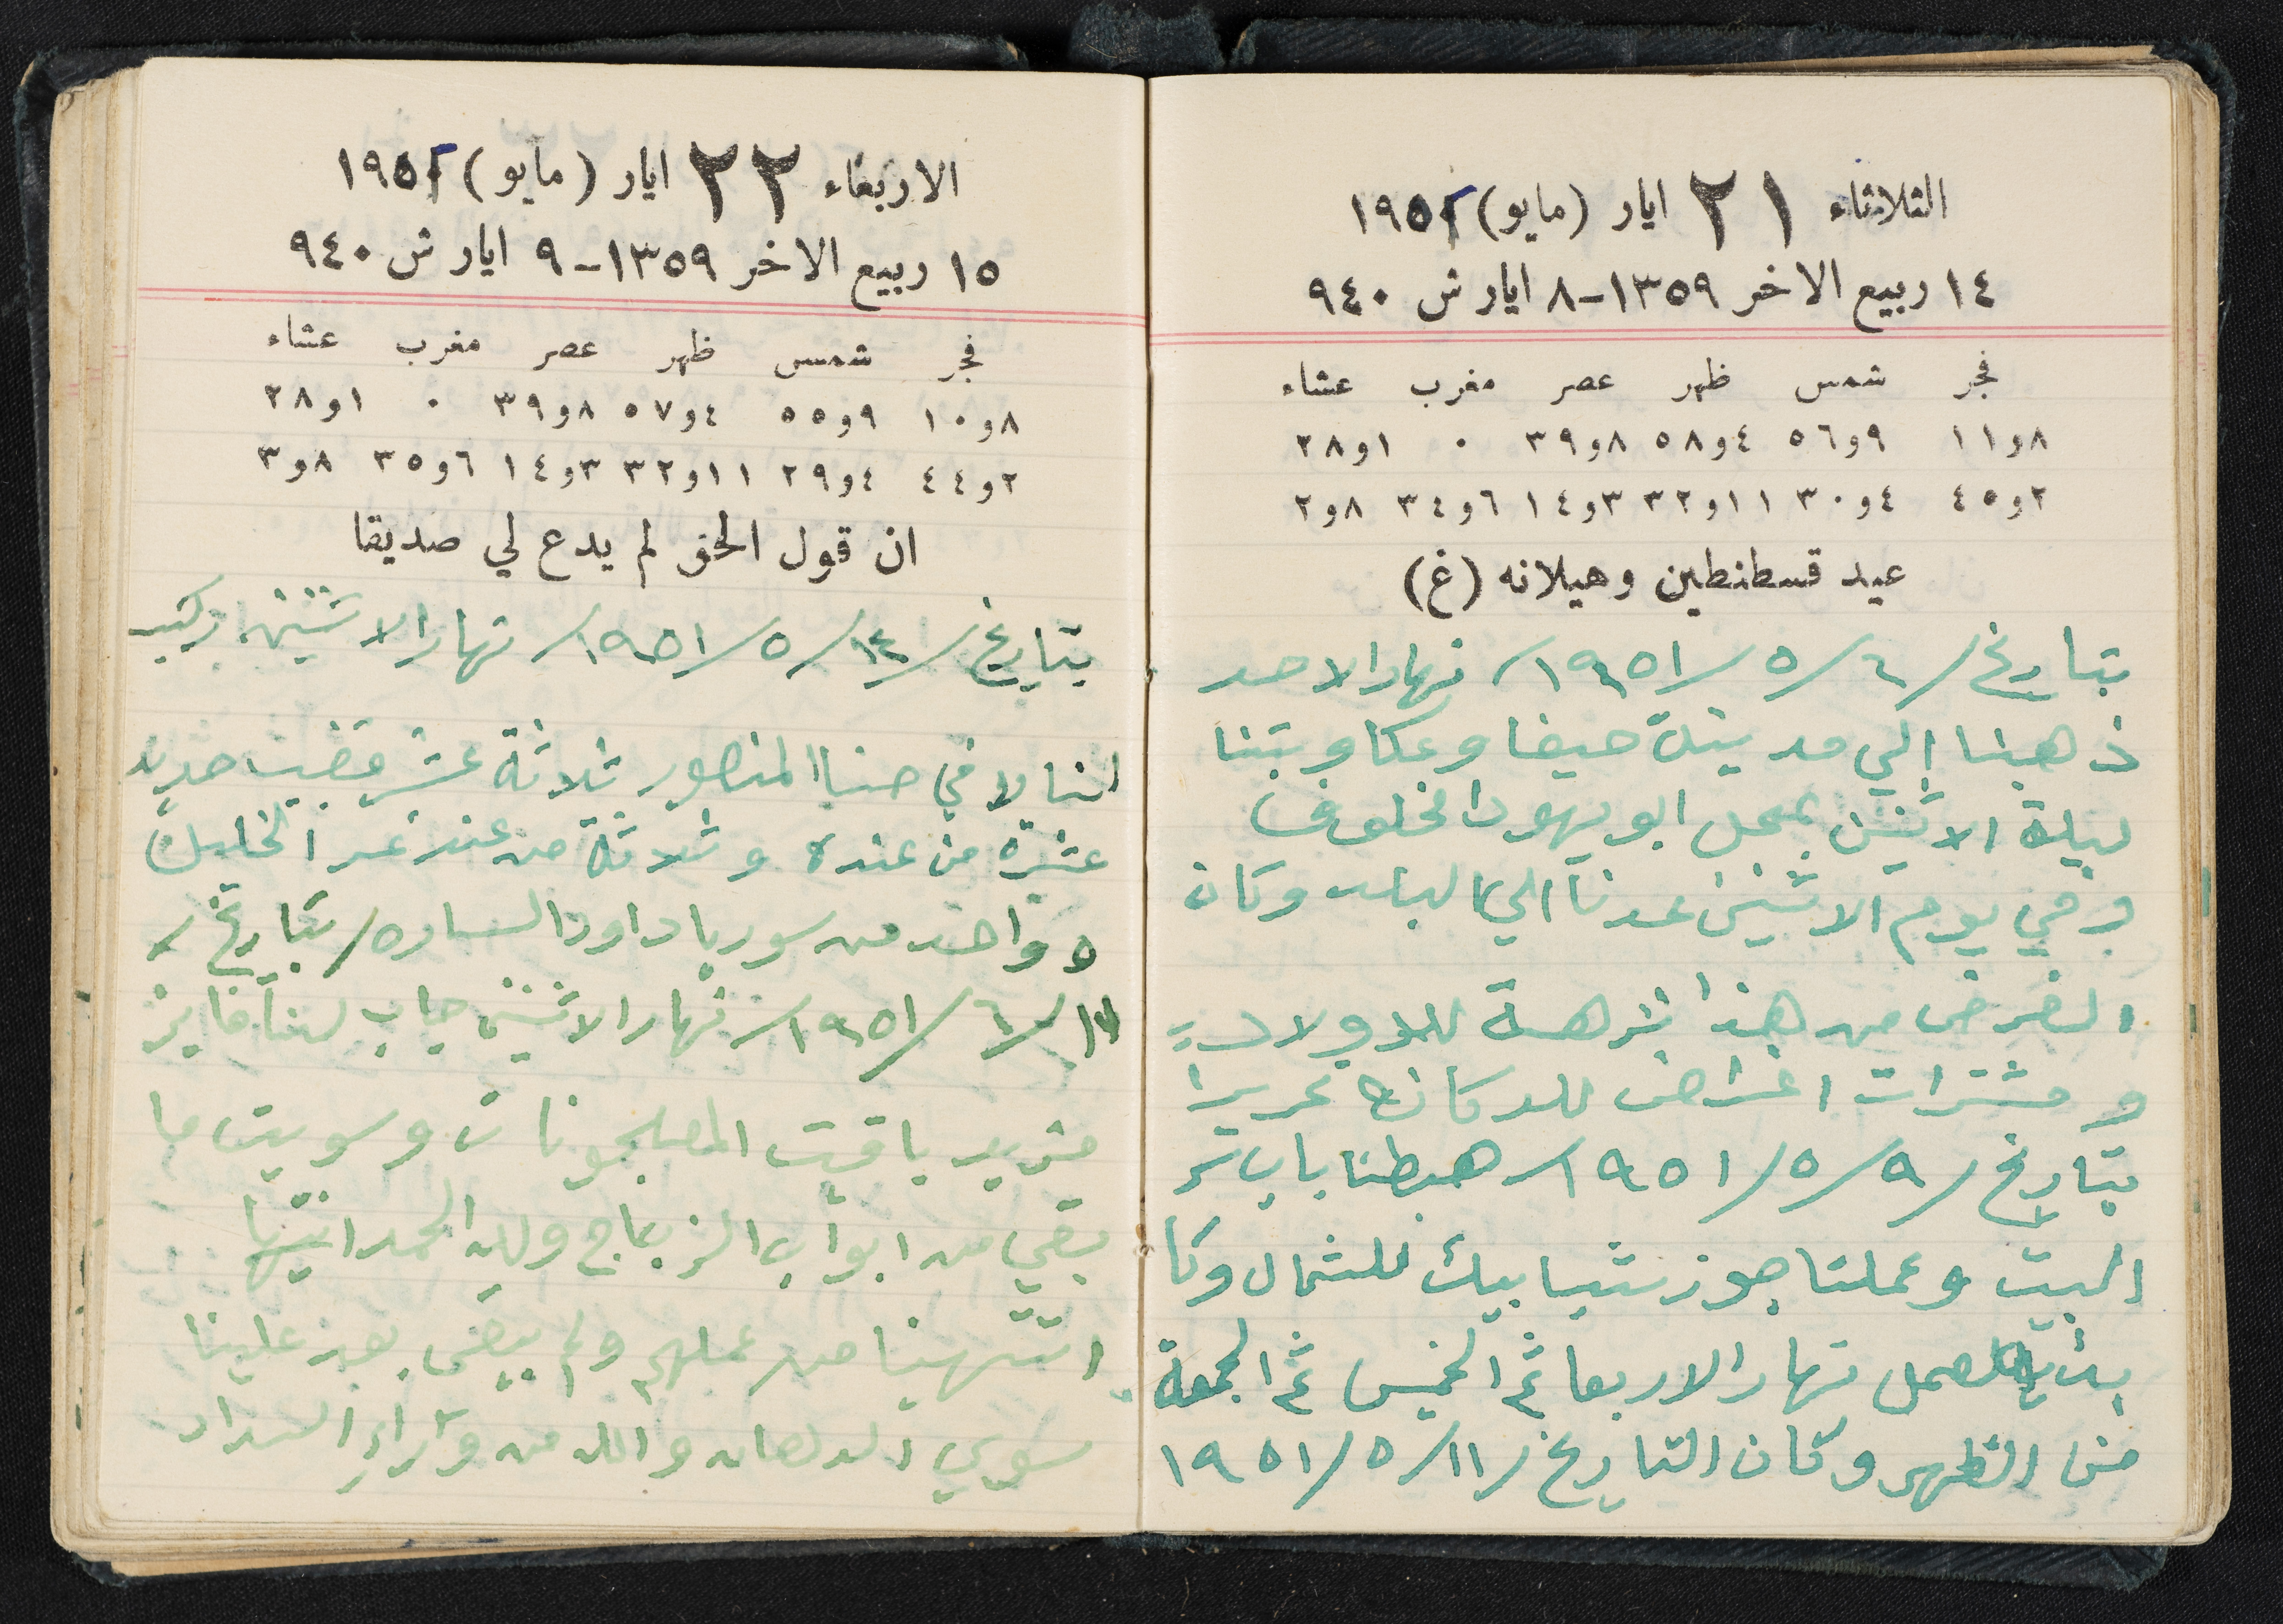 الثلاثاء ٢١ ايار (مايو) ١٩٥١
١٤ ربيع الاخر ١٣٥٩-٨ ايار ش ٩٤٠
فجر شمس ظهر عصر مغرب عشاء
٨و١١ ٩و٥٦ ٤و٥٨ ٨و٣٩ ٠ ١و٢٨
٢و٤٥ ٤و٣٠ ١١و٣٢ ٣و١٤ ٦و٣٤ ٨و٢
عيد قسطنطين وهيلانه (غ)
بتاريخ /٦/ ٥/ ١٩٥١/ نهار الاحد
ذهبنا إلي مدينة حيفا وعكا وبتنا
ليلة الاثنين بمحل ابو يهودا مخلوف
وفي يوم الاثنين عدنا الي البلد وكان
الغرض من هذا نزهة للاولاد
ومشترات اغراض للدكان تحريرا
بتاريخ /٩/ ٥/ ١٩٥١/ هبطنا باب
البيت وعملنا جوز شبابيك للشمال وكا
بدئ العمل نهار الاربعا ثم الخميس ثم الجمعة
من الظهر وكان التاريخ /١١/ ٥/ ١٩٥١
الاربعاء ٢٢ ايار (مايو) ١٩٥١
١٥ ربيع الاخر ١٣٥٩-٩ ايار ش ٩٤٠
فجر شمس ظهر عصر مغرب عشاء
٨و١٠ ٩و٥٥ ٤و٥٧ ٨و٣٩ ٠ ١و٢٨
٢و٤٤ ٤و٢٩ ١١و٣٢ ٣و١٤ ٦و٣٥ ٨و٣
ان قول الحق لم يدع لي صديقا
بتاريخ /١٤/ ٥/ ١٩٥١/ نهار الاثنين ركب
لنا لافي حنا المنصور ثلاثة عشر قضيب حديد
عشرة من عنده وثلاثة من عند نمر الخليل
وواحد من سوريا داود الساره/ بتاريخ /
/٦/ ١٩٥١/ نهار الاثنين جاب لنا فايز
مزيد باقيت المصلجونات وسويت ما
بقي من ابواب الزجاج ولله الحمد انتها
انتهينا من عملهم ولم يبقى بعد علينا
سوي الدهان والله من وراء السداد